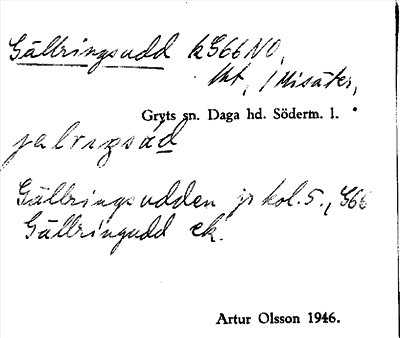 Gällringsudd k G66 NO,
t, / Misäter,
Gryts sn. Daga hd. Söderm. l.
jalrıgsúd
Gällringsudden jr kol. 5., G66
Gällringudd ek.
Artur Olsson 1946.